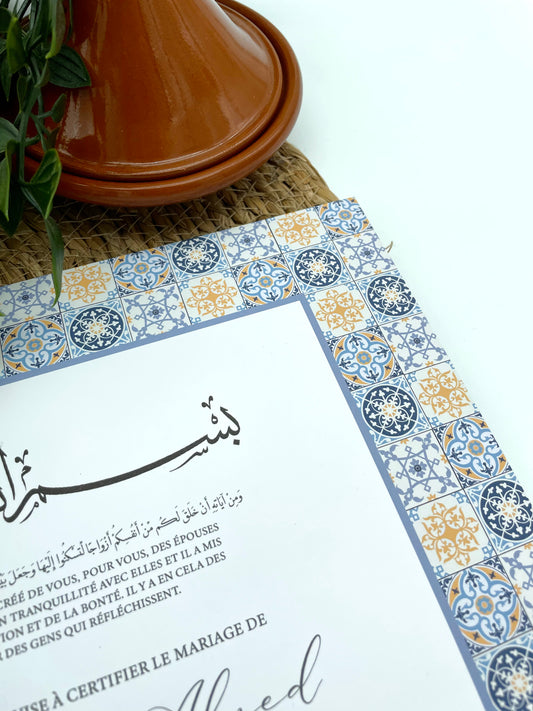 بسم ا
وَمِنْ آيَاتِهِ أَنْ خَلَقَ لَكُم مِّنْ أَنفُسِكُمْ أَزْوَاجًا لِّتَسْكُنُوا إِلَيْهَا وَجَعَلَ
CRÉÉ DE VOUS, POUR VOUS, DES ÉPOUSES
N TRANQUILLITÉ AVEC ELLES ET IL A MIS
TION ET DE LA BONTÉ. IL Y A EN CELA DES
R DES GENS QUI RÉFLÉCHISSENT.
ISE À CERTIFIER LE MARIAGE DE